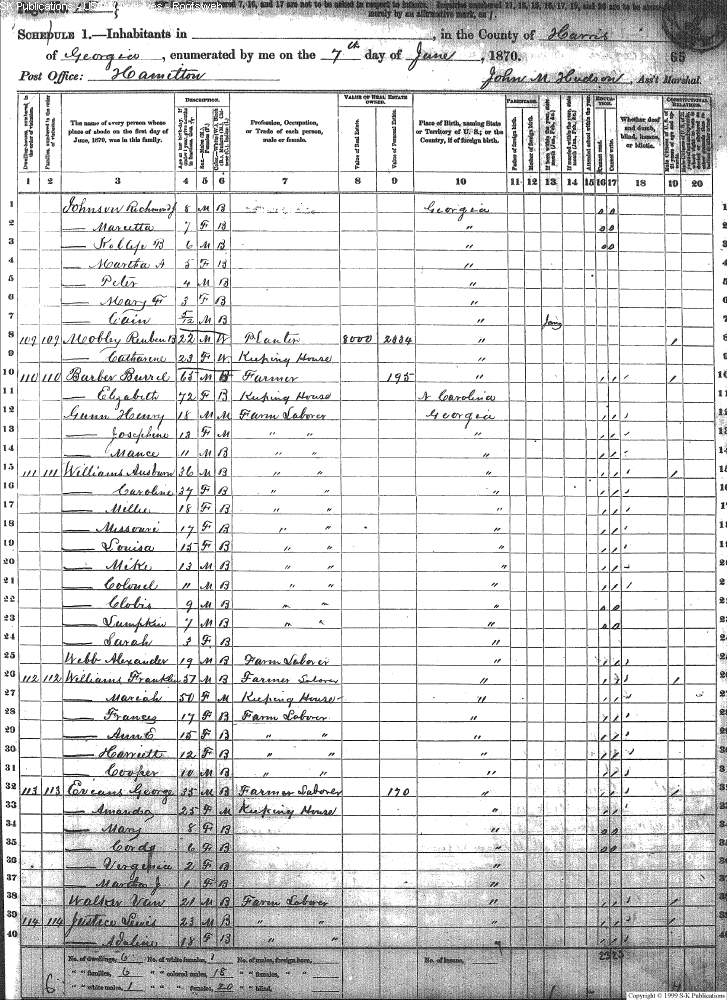 SK Publications - US Rootsweb
SCHEDULE 1.—Inhabitants in , in the County of Harris
of Georgia, enumerated by me on the 7th day of June, 1870. 65
Post Office: Hamilton John M Hudson, Ass't Marshal.
DESCRIPTION. VALUE OF REAL ESTATE OWNED. PARENTAGE. CONSTITUTIONAL RELATIONS.
The name of every person whose place of abode on the first day of June, 1870, was in this family.
Profession, Occupation, or Trade of each person, male or female.
Value of Real Estate. Value of Personal Estate.
Place of Birth, naming State or Territory of U. S.; or the Country, if of foreign birth.
Whether deaf and dumb, blind, insane, or idiotic.
1 2 3 4 5 6 7 8 9 10 11 12 13 14 15 16 17 18 19 20
1 Johnson Richmond J 8 M B Georgia 0 0 1
2 — Marietta 7 F B " 0 0 2
3 — B 6 M B " 0 0 3
4 — Martha A 5 F B " 4
5 — Peter 4 M B " 5
6 — Mary F 3 F B " 6
7 — Cain 5/12 M B " Jany 7
8 109 109 Mobley Reuben B 22 M W Planter 8000 " / 8
9 — Catharene 23 F W Keeping House " 9
10 110 110 Barber Burrel 65 M B Farmer 195 " / / / / 10
11 — Elizabeth 72 F B Keeping House N Carolina / / / 11
12 Gunn Henry 18 M M Farm Laborer Georgia / / / 12
13 — Josephine 13 F M " " " / / / 13
14 — Mance 11 M B " " " / / / 14
15 111 111 Williams Ausburn 36 M B " " " / / / / 15
16 — Caroline 37 F B " " " / / / 16
17 — Millie 18 F B " " " / / / 17
18 — Missouri 17 F B " " " / / / 18
19 — Louisa 15 F B " " " / / / 19
20 — Mike 13 M B " " " / / / 20
21 — Colonel 11 M B " " " / / / 21
22 — Clobis 9 M B " " " 0 0 22
23 — Lumpkin 7 M B " " " 0 0 23
24 — Sarah 3 F B " 24
25 Webb Alexander 19 M B Farm Laborer " / / / 25
26 112 112 Williams Franklin 57 M B Farmer " / / / / 26
27 — Mariah 50 F M Keeping House " / / / 27
28 — Frances 17 F B Farm Laborer " / / / 28
29 — Ann E 15 F B " " " / / / 29
30 — Harriett 12 F B " " " / / / 30
31 — Cooper 10 M B " " " / / / 31
32 113 113 Eveans George 35 M B Farmer Laborer 170 " / / / / 32
33 — Amanda 25 F M Keeping House " / / / 33
34 — Mary 8 F B " 0 0 34
35 — Cordy 6 F B " 0 0 35
36 — Virginia 2 F B " 36
37 — Martha J 1 F B " 37
38 Walker Van 21 M B Farm Laborer " / / / 38
39 114 114 Justice Lewis 23 M B " " " / / / / 39
40 — Adaline 18 F B " " " / / / 40
No. of dwellings, 6 No. of white females, 1 No. of males, foreign born, No. of insane,
" " families, 6 " " colored males, 18 " " females, "
" " white males, 1 " " " females, 20 " " blind,
Copyright © 1999 S-K Publications